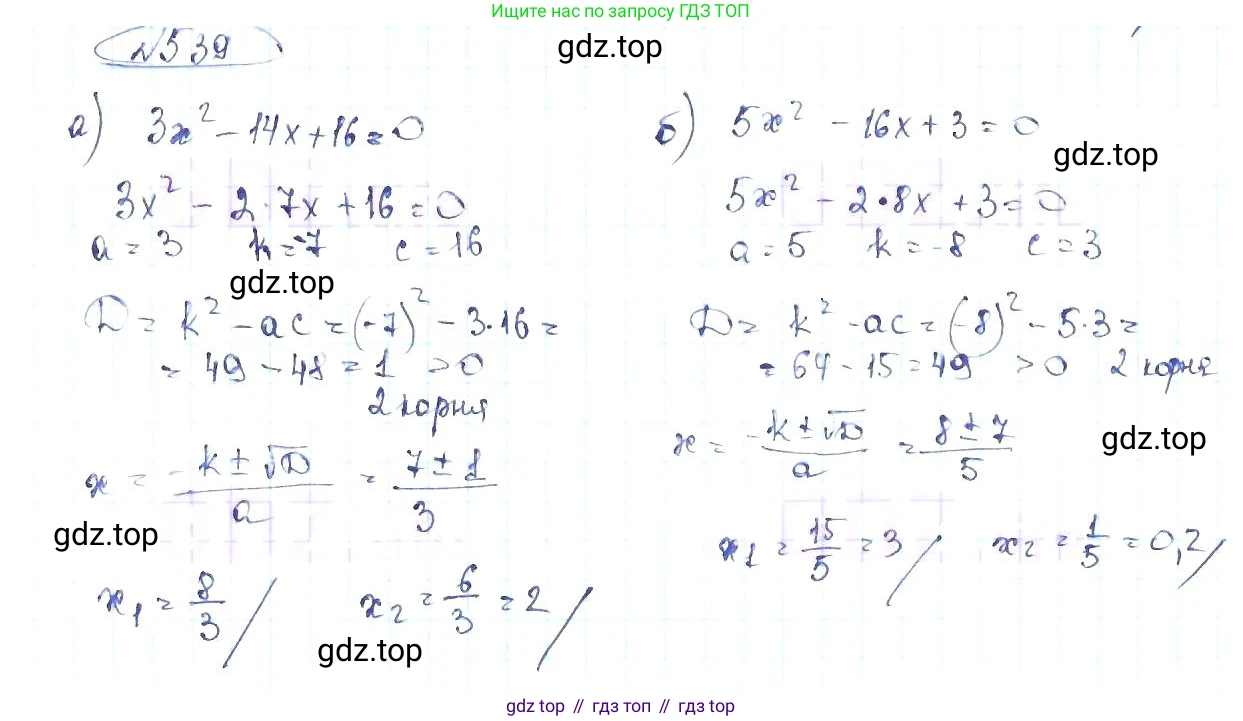 Ищите нас по запросу ГДЗ ТОП
№539
gdz.top
а) 3x² - 14x + 16 = 0
3x² - 2·7x + 16 = 0
a = 3 k = -7 c = 16
gdz.top
D = k² - ac = (-7)² - 3·16 =
= 49 - 48 = 1 > 0
2 корня
x = (-k ± √D)/a = (7 ± 1)/3
gdz.top
x₁ = 8/3 / x₂ = 6/3 = 2 /
gdz.top
б) 5x² - 16x + 3 = 0
gdz.top
5x² - 2·8x + 3 = 0
a = 5 k = -8 c = 3
D = k² - ac = (-8)² - 5·3 =
= 64 - 15 = 49 > 0 2 корня
x = (-k ± √D)/a = (8 ± 7)/5
gdz.top
x₁ = 15/5 = 3 / x₂ = 1/5 = 0,2 /
gdz.top // гдз топ // gdz top